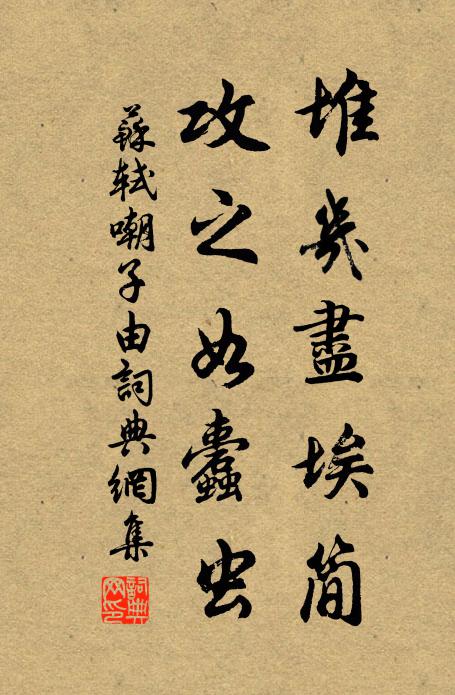 堆几盡埃简
攻之如蠹虫
蘇轼嘲子由詞典網集
詞典網印